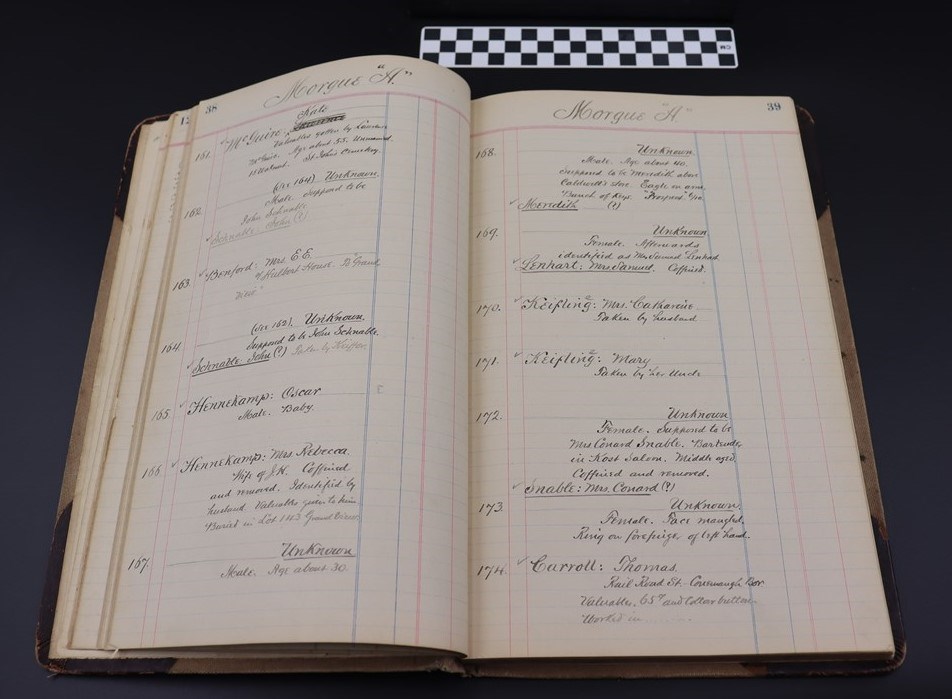 38
Morgue "A"
Kate
161. McGuire,
Valuables taken by
McGuire. Age about 55. Unmarried.
St. John's Cemetery.
(See 164) Unknown.
162.
Male. Supposed to be
John Schnable
Schnable: John (?)
163. Benford: Mrs E.E.
of Hulbert House. "Grand
View"
(See 162) Unknown.
164. Supposed to be John Schnable.
Schnable: John (?) Taken by
165. Hennekamp: Oscar
Male. Baby.
166. Hennekamp: Mrs Rebecca.
Wife of J.H. Coffined
and removed. Identified by
husband. Valuables given to him
Buried in Lot 142 Grand View
167. Unknown
Male. Age about 30.
Morgue "A"
39
168. Unknown.
Male. Age about 40.
Supposed to be Meredith above
Caldwell's Store. Eagle on arm,
Bunch of Keys. "Prospect"
Meredith (?)
169. Unknown
Female. Afterwards
identified as Mrs Samuel Lenhart
Lenhart: Mrs Samuel. Coffined.
170. Keifling: Mrs. Catharine
Taken by husband
171. Keifling: Mary
Taken by her Uncle
172. Unknown
Female. Supposed to be
Mrs Conard Snable. Bartender
in Kost Saloon. Middle aged.
Coffined and removed.
Snable: Mrs. Conard (?)
173. Unknown.
Female. Face mangled.
Ring on forefinger of left hand.
174. Carroll: Thomas.
Rail Road St. Conemaugh Bor
Valuables. 65¢ and collar button
Worked in
CM